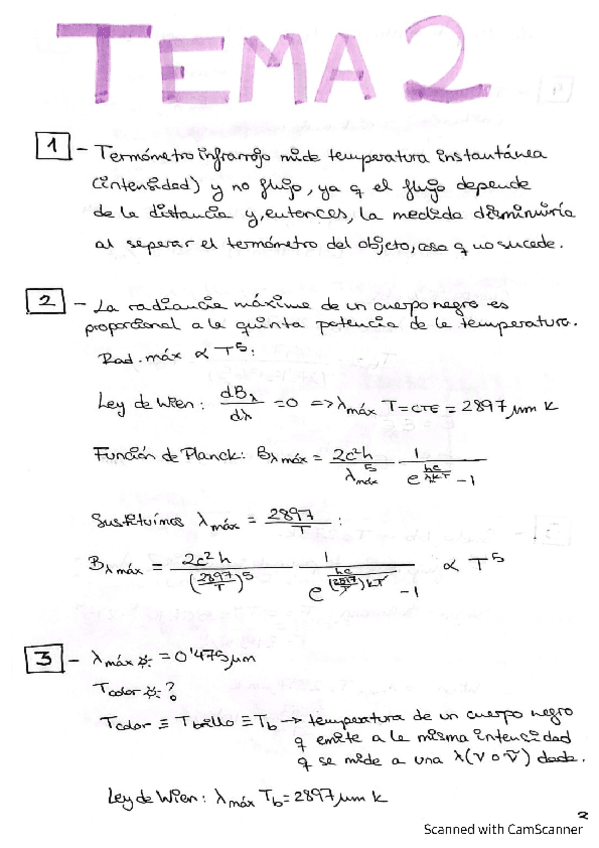 TEMA 2
1 - Termómetro infrarrojo mide temperatura instantánea
(intensidad) y no flujo, ya q el flujo depende
de la distancia y, entonces, la medida disminuiría
al separar el termómetro del objeto, cosa q no sucede.
2 - La radiancia máxima de un cuerpo negro es
proporcional a la quinta potencia de la temperatura.
Rad. máx ∝ T⁵:
Ley de Wien: dBλ/dλ = 0 => λmáx T = CTE = 2897 μm K
Función de Planck: Bλ máx = 2c²h/λmáx⁵ 1/(e^(hc/λKT) - 1)
Sustituímos λmáx = 2897/T :
Bλ máx = 2c²h/(2897/T)⁵ 1/(e^(hc/(2897/T)KT) - 1) ∝ T⁵
3 - λmáx ☼ = 0'475 μm
Tcolor ☼ ?
Tcolor ≡ Tbrillo ≡ Tb → temperatura de un cuerpo negro
q emite a la misma intensidad
q se mide a una λ (ν o ν̃) dada.
Ley de Wien: λmáx Tb = 2897 μm K
2
Scanned with CamScanner